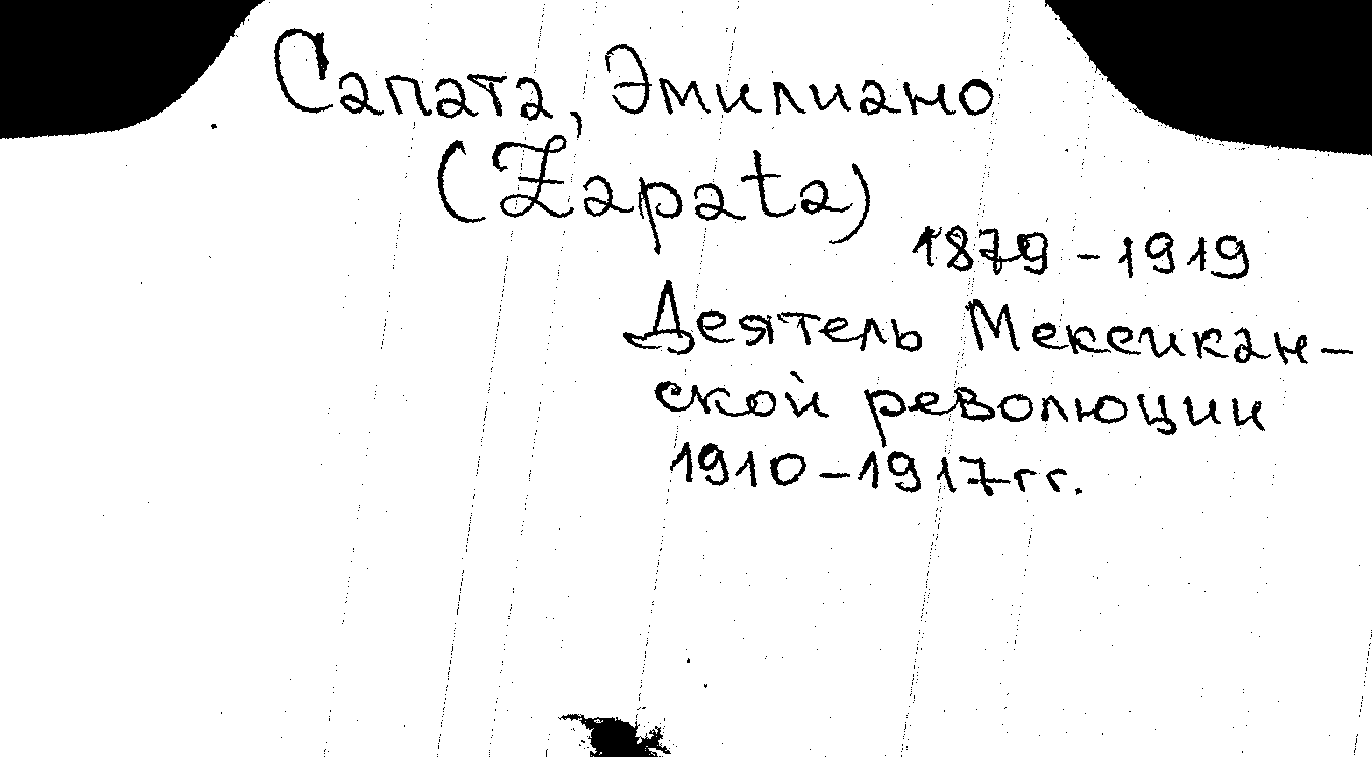 Сапата, Эмилиано
(Zapata)
1879 - 1919
Деятель Мексикан-
ской революции
1910-1917гг.